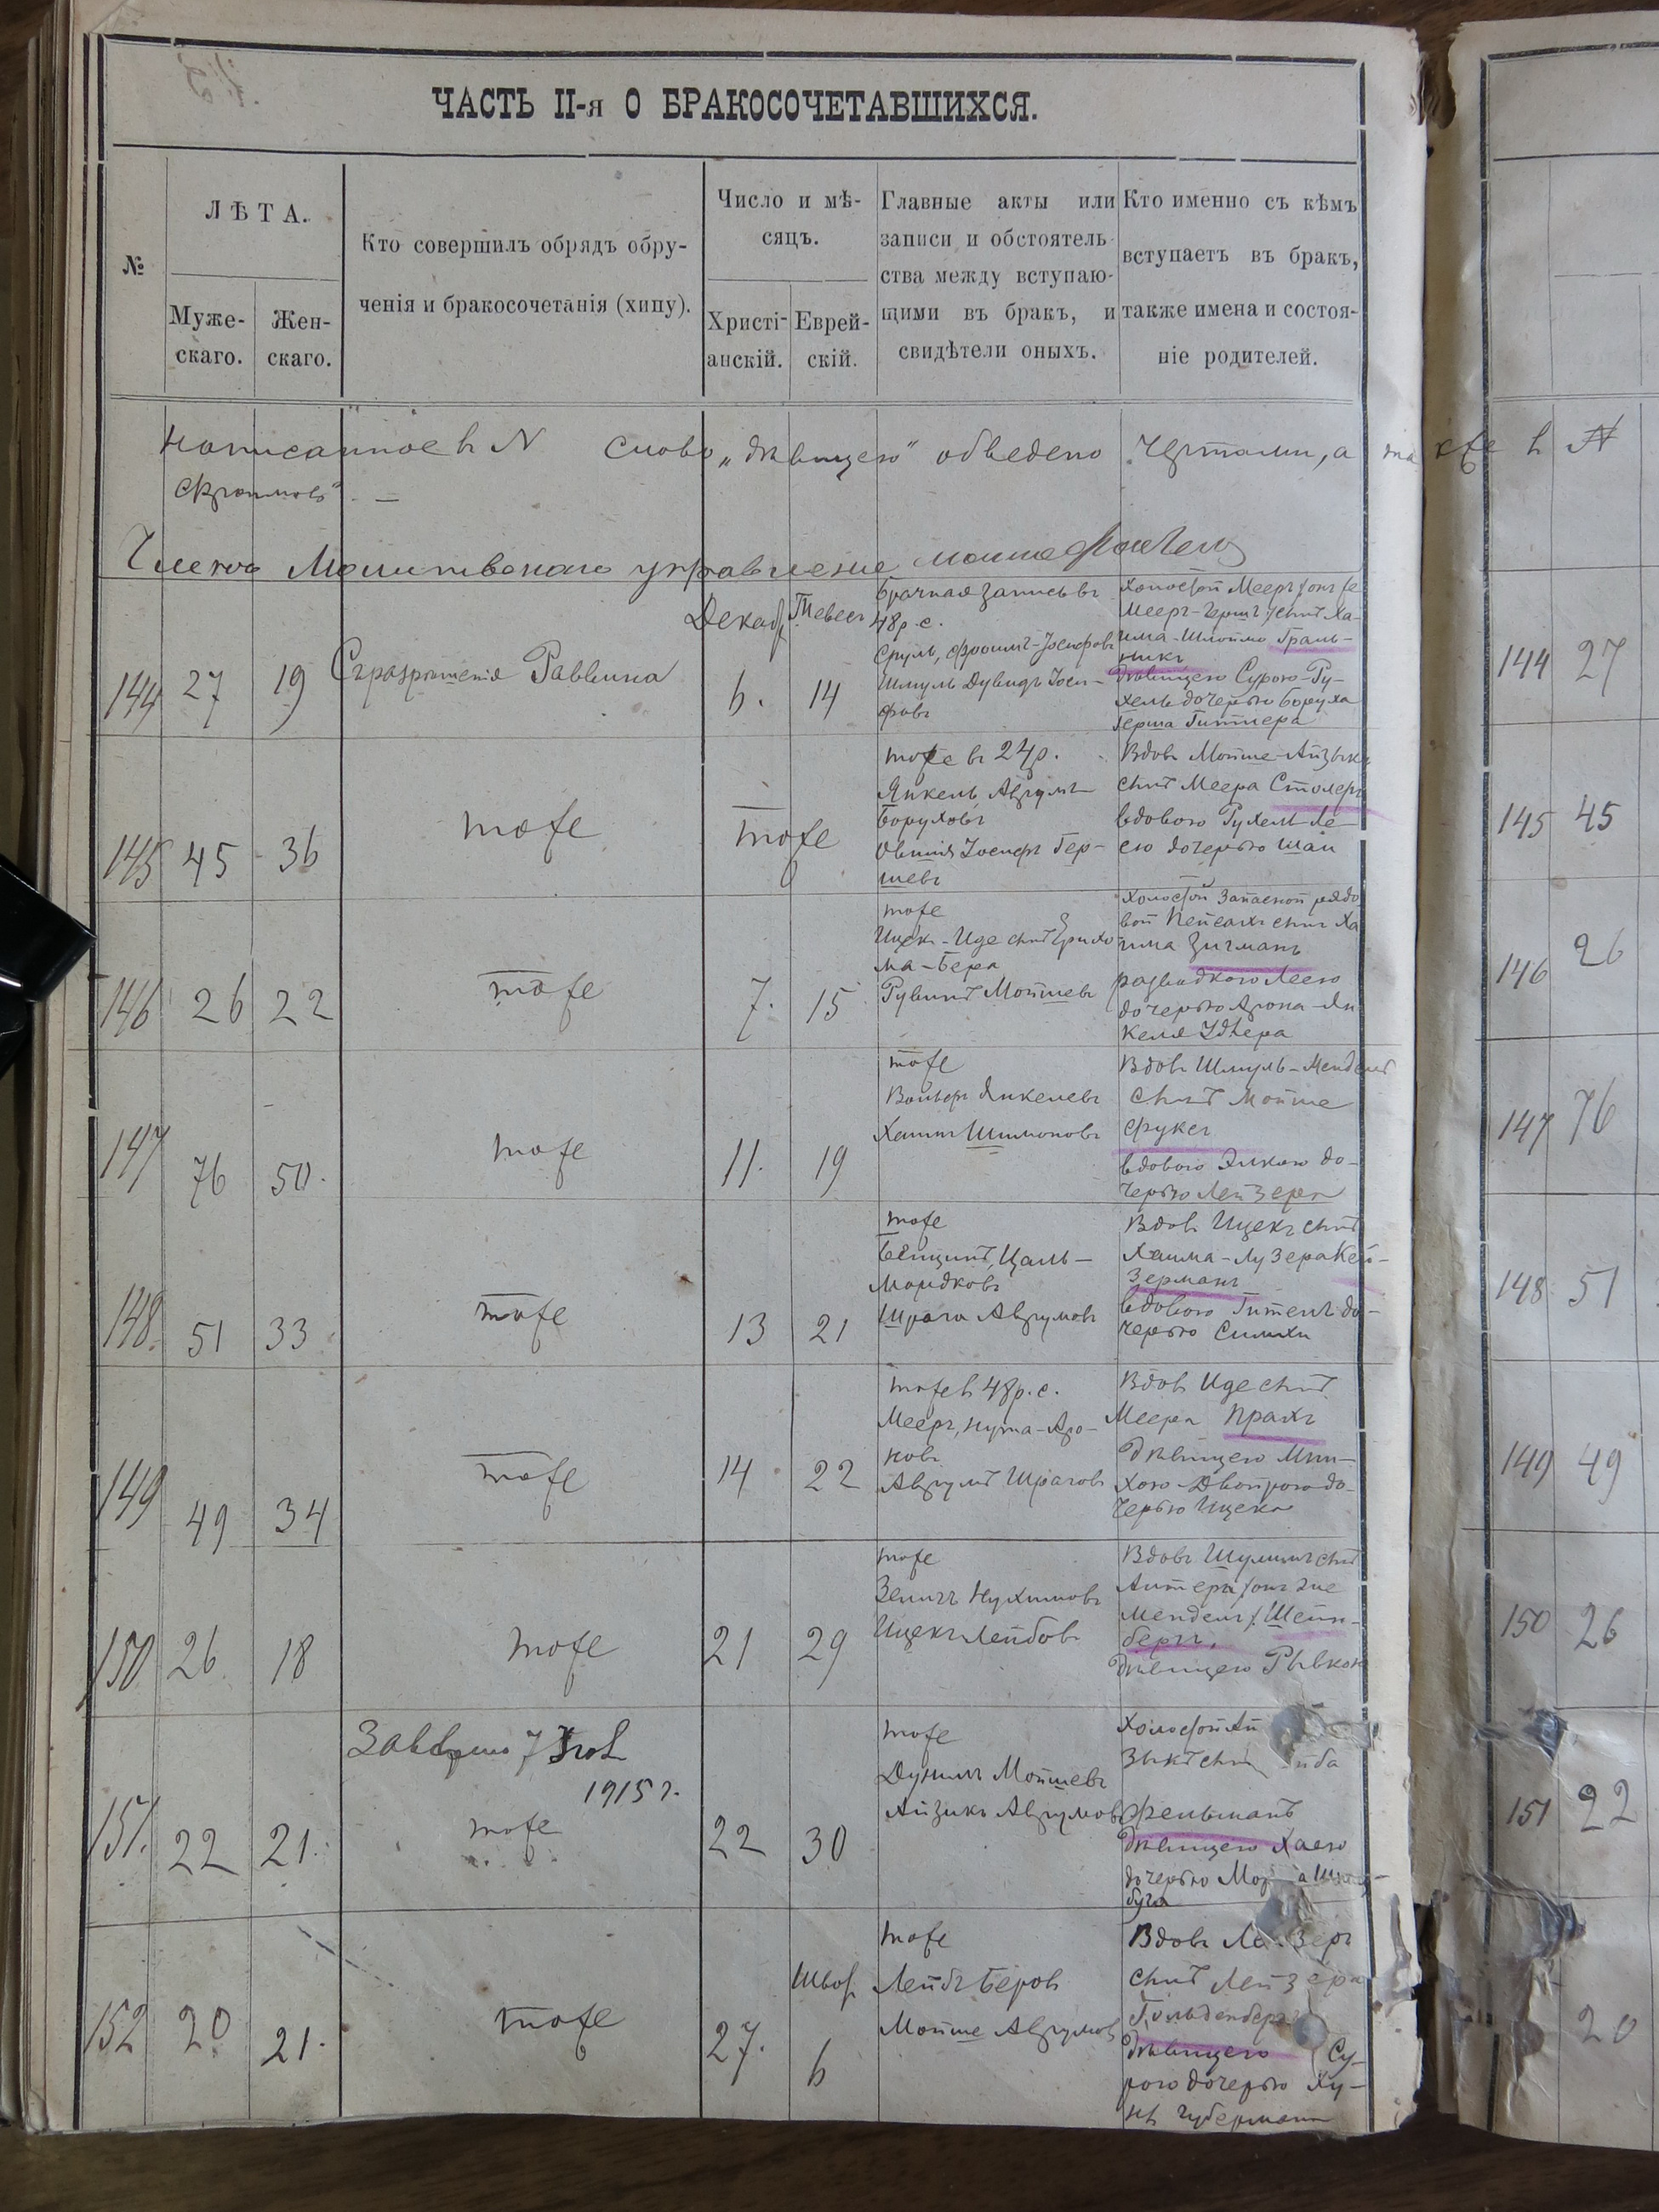 ЧАСТЬ II-я О БРАКОСОЧЕТАВШИХСЯ.
№
ЛѢТА.
Муже-
скаго.
Жен-
скаго.
Кто совершилъ обрядъ обру-
ченія и бракосочетанія (хипу).
Число и мѣ-
сяцъ.
Христі-
анскій.
Еврей-
скій.
Главные акты или
записи и обстоятель-
ства между вступаю-
щими въ бракъ, и
свидѣтели оныхъ.
Кто именно съ кѣмъ
вступаетъ въ бракъ,
также имена и состоя-
ніе родителей.
Написанное в N слово „дѣвицею" обведено чертами, а также в N
Членъ Молитвеннаго управленія Мойше
144 27 19 Съ разрѣшенія Раввина
Декаб Тевесъ
6. 14
Брачная запись въ
48 р. с.
Сруль, Фроимъ-Іосифовъ
Шмуль Дувидъ Іоси-
фовъ
Холостой Мееръ /онъ же
Мееръ-Гершъ/ сынъ Ха-
има-Шлоймо Граль-
никъ
дѣвицею Сурою-Ру-
хель дочерью Боруха
Герша Гитлера
145 45 36 тоже
тоже
тоже въ 24 р.
Янкель, Аврумъ
Боруховъ
Овшія Іосифъ Гер-
шевъ
Вдовъ Мойше-Айзыкъ
сынъ Меера Столеръ
вдовою Рухель-Ле-
ею дочерью Шаи
146 26 22 тоже
7. 15
тоже
Ицек-Иде сынъ
ма-Бера
Рувинъ Мойшевъ
Холостой запасной рядо
вой Пейсахъ сынъ Ха
има Зигманъ
разводкою Леею
дочерью Арона-Ян
келя
147 76 50. тоже
11. 19
тоже
Вольфъ Янкелевъ
Хаимъ Шимоновъ
Вдовъ Шмуль-Мендель
сынъ Мойше
Фуксъ
вдовою Элькою до-
черью Лейзера
148. 51 33 тоже
13 21
тоже
Бенционъ, Цаль-
Мордковъ
Шрага Аврумовъ
Вдовъ Ицекъ сынъ
Хаима-Лузера Кей-
зерманъ
вдовою Гитель до-
черью Симхи
149 49 34 тоже
14 22
тоже в 48 р. с.
Мееръ, Нута-Аро-
новъ
Аврумъ Шраговъ
Вдовъ Иде сынъ
Меера Прахъ
дѣвицею Мин-
хою-Двойрою до-
черью Ицека
150 26 18 тоже
21 29
тоже
Зелигъ Нухимовъ
Ицекъ Лейбовъ
Вдовъ Шулимъ сынъ
Алтера /онъ же
Мендель/ Шейн-
бергъ,
дѣвицею Рывкою
1915 г.
151. 22 21. тоже
22 30
тоже
Дунилъ Мойшевъ
Айзикъ Аврумовъ
Холостой Ай
зыкъ сынъ
Фельманъ
дѣвицею Хаею
дочерью
152 20 21. тоже
Шваг
27. 6
тоже
Лейбъ Беровъ
Мойше Аврумовъ
Вдовъ
сынъ Лейзера
Гольденбергъ
дѣвицею Су-
рою дочерью Ху-
нѣ Губерманъ
144 27
145 45
146 26
147 76
148 51
149 49
150 26
151 22
20